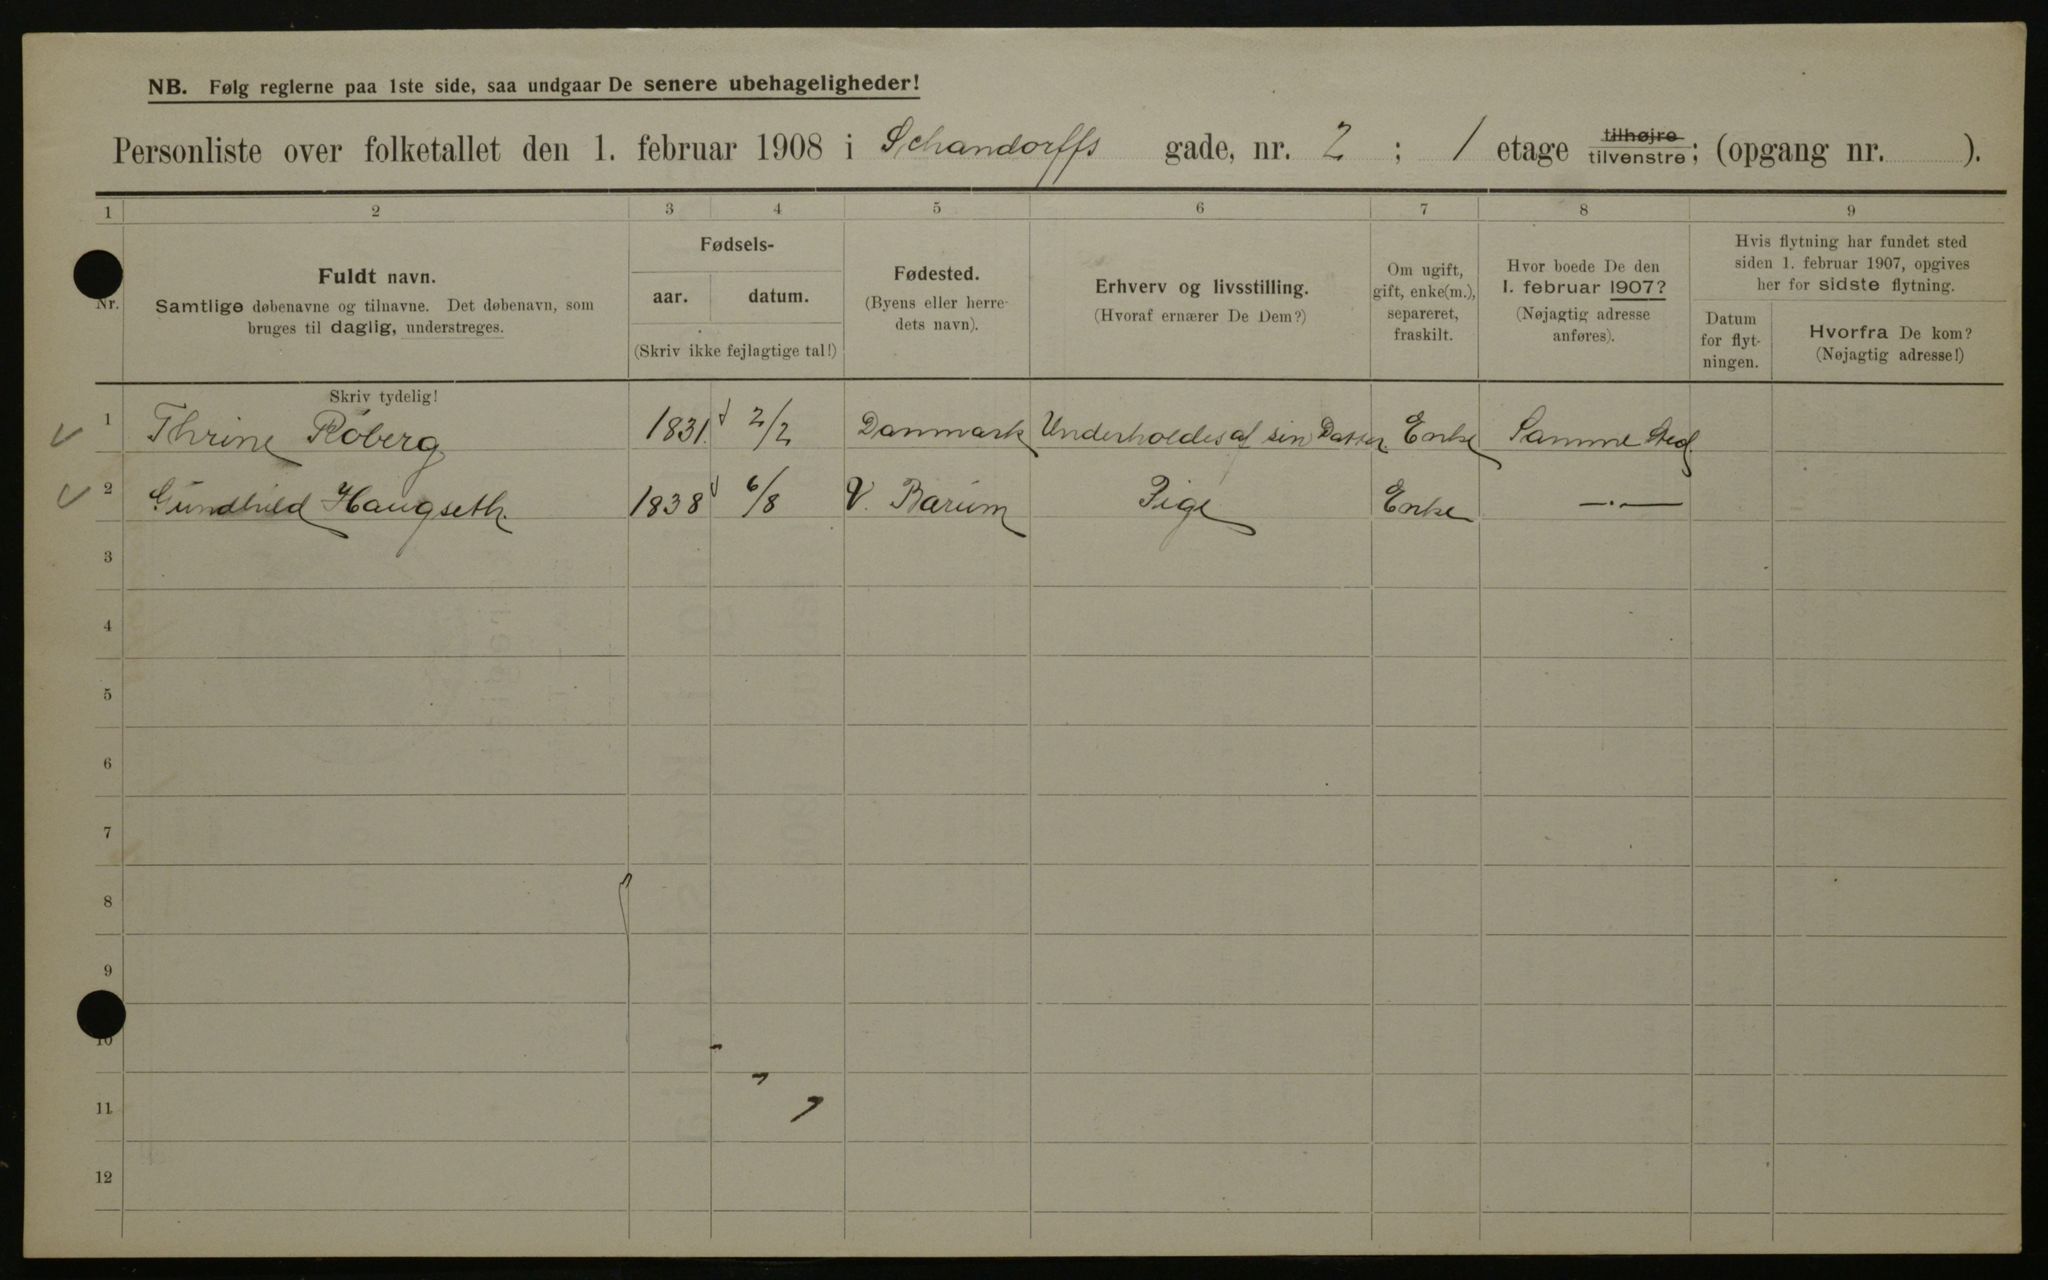 NB. Følg reglerne paa 1ste side, saa undgaar De senere ubehageligheder!
Personliste over folketallet den 1. februar 1908 i Schandorffs gade, nr. 2 ; 1 etage tilhøjre tilvenstre; (opgang nr. ).
1 2 3 4 5 6 7 8 9
Nr.
Fuldt navn.
Samtlige døbenavne og tilnavne. Det døbenavn, som
bruges til daglig, understreges.
Fødsels-
aar. datum.
(Skriv ikke fejlagtige tal!)
Fødested.
(Byens eller herre-
dets navn).
Erhverv og livsstilling.
(Hvoraf ernærer De Dem?)
Om ugift,
gift, enke(m.),
separeret,
fraskilt.
Hvor boede De den
1. februar 1907?
(Nøjagtig adresse
anføres).
Hvis flytning har fundet sted
siden 1. februar 1907, opgives
her for sidste flytning.
Datum
for flyt-
ningen.
Hvorfra De kom?
(Nøjagtig adresse!)
Skriv tydelig!
1 Thrine Röberg 1831 2/2 Danmark Underholdes af sin Datter Enke Samme Sted.
2 Gundhild Haugseth. 1838 6/8 V. Bærum Pige Enke —·—
3
4
5
6
7
8
9
10
11
12